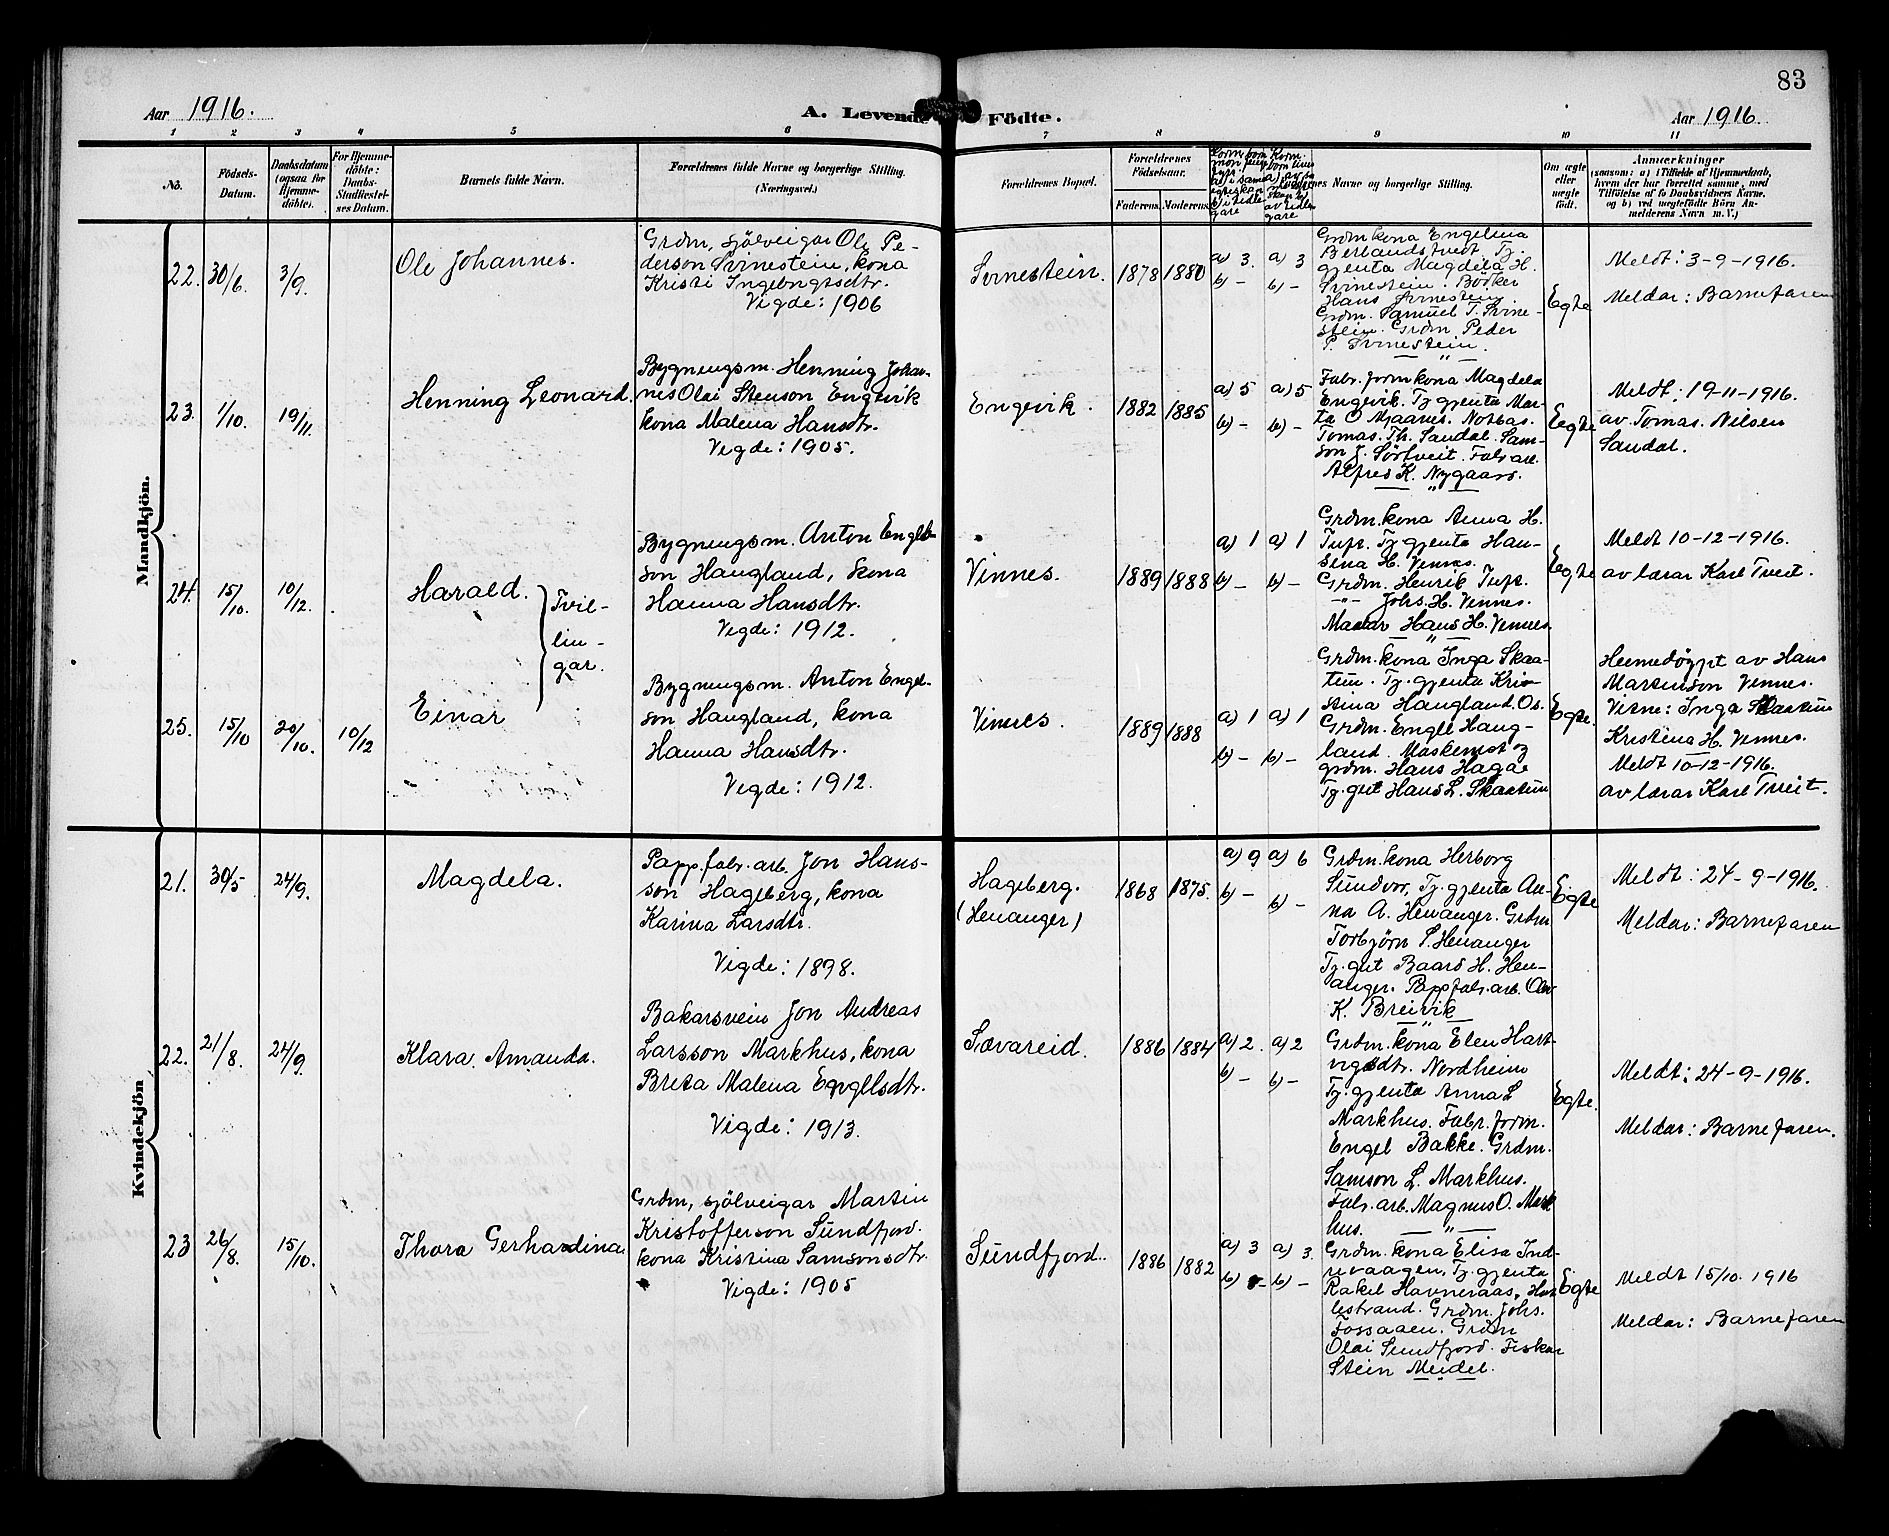 83
Aar 1916.
A. Levende Födte.
Aar 1916.
1 2 3 4 5 6 7 8 9 10 11
No.
Födsels-
Datum.
Daabsdatum
(ogsaa for
Hjemme-
döbte).
For Hjemme-
döbte:
Daabs-
Stadfæstel-
ses Datum.
Barnets fulde Navn.
Forældrenes fulde Navne og borgerlige Stilling.
(Næringsvei.)
Forældrenes Bopæl.
Forældrenes
Födselsaar.
Faderens.
Moderens.
Navne og borgerlige Stilling.
Om ægte
eller
uægte
født.
Anmærkninger
(saasom: a) i Tilfælde af Hjemmedaab,
hvem der har forrettet samme, med
Tilföielse af to Daabsvidners Navne.
og b) ved uegtefödte Börn An-
melderens Navn m. V.)
Mandkjön.
22.
30/6.
3/9.
Ole Johannes.
Grdm, sjölveigar Ole Pe-
derson Svinestein, kona
Kristi Ingebrigtsdtr.
Vigde: 1906
Svinestein.
1878
1880
a) 3.
b) –
a) 3
b) –
Grdm kona Engelina
Berlandstvedt. Tj
gjenta Magdela H.
Svinestein. Bödker
Hans Svinestein.
Grdm. Samuel T. Svine-
stein. Grdm. Peder
P. Svinestein.
Egte
Meldt: 3-9-1916.
Meldar: Barnefaren
23.
1/10.
19/11.
Henning Leonard.
Bygningsm. Henning Johan-
nes Olai Stenson Engevik
kona Malena Hansdtr.
Vigde: 1905.
Engevik.
1882
1885
a) 5
b) –
a) 5
b) –
Fabr. formkona Magdela
Engevik. Tj gjenta Mar-
ta O Mjaanes. Notbas.
Tomas. Th. Sandal. Sam-
son J. Sörtveit. Fabr arb.
Alfred K. Nygaard.
Egte
Meldt: 19-11-1916.
av Tomas. Nilsen
Sandal.
24.
15/10.
10/12.
Harald.
Tvil-
lin-
gar.
Bygningsm. Anton Engel-
son Haugland, kona
Hanna Hansdtr.
Vigde: 1912.
Vinnes.
1889
1888
a) 1
b) –
a) 1
b) –
Grdm. kona Anna H.
Tuft. Tj gjenta Han-
sina H. Vinnes.
Grdm. Henrik Tuft.
–"– Johs. H. Vinnes.
Malar Hans H. Vinnes
Egte
Meldt 10-12-1916.
av lærar Karl Tveit.
25.
15/10
20/10.
10/12
Einar
Bygningsm. Anton Engel-
son Haugland, kona
Hanna Hansdtr.
Vigde: 1912.
Vinnes.
1889
1888
a) 1
b) –
a) 1
b) –
Grdm. kona Inga Skaa-
tun. Tj. gjenta Kris-
tina Haugland. Os.
Grdm. Engel Haug-
land. Maskemst og
grdm. Hans Haga
Tj. gut Hans L. Skaatun
Egte.
Heimedöypt av Hans
Martinson Vinnes.
Vitne: Inga Skaatun
Kristina H. Vinnes.
Meldt 10-12-1916.
av lærar Karl Tveit.
Kvindekjön
21.
30/5
24/9.
Magdela.
Papp.fabr. arb. Jon Hans-
son Hageberg, kona
Karina Larsdtr.
Vigde: 1898.
Hageberg.
(Henanger)
1868
1875.
a) 9
b) –
a) 6
b) –
Grdm. kona Herborg
Sundvor, Tj. gjenta An-
na A. Henanger. Grdm
Torbjørn S. Henanger
Tj. gut Baard H. Hen-
anger. Pappfabr. arb. Olav
K. Breivik
Egte
Meldt: 24-9-1916.
Meldar: Barnefaren
22.
21/8.
24/9.
Klara Amanda.
Bakarsvein Jon Andreas
Larsson Markhus, kona
Brita Malena Engelsdtr.
Vigde: 1913.
Sævareid.
1886
1884
a) 2.
b) –
a) 2
b) –
Grdm. kona Elen Hart-
vigsdtr. Nordheim
Tj. gjenta Anna L
Markhus. Fabr. form.
Engel Bakke. Grdm.
Samson L. Markhus.
Fabr. arb. Magnus O. Mark
hus.
Egte.
Meldt: 24-9-1916.
Meldar: Barnefaren.
23
26/8.
15/10.
Thora Gerhardina
Grdm, sjölveigar Martin
Kristofferson Sundfjord.
kona Kristina Samsonsdtr.
Vigde: 1905
Sundfjord..
1886
1882
a) 3
b) –
a) 3.
b) –
Grdm. kona Elisa Ind-
revaagen, Tj. gjenta
Rakel Havneraas,
lestrand. Grdm. Johs.
Fossaaen. Grdm
Olai Sundfjord. Fiskar
Stein Meidel.
Egte
Meldt 15/10. 1916
Meldar: Barnefaren